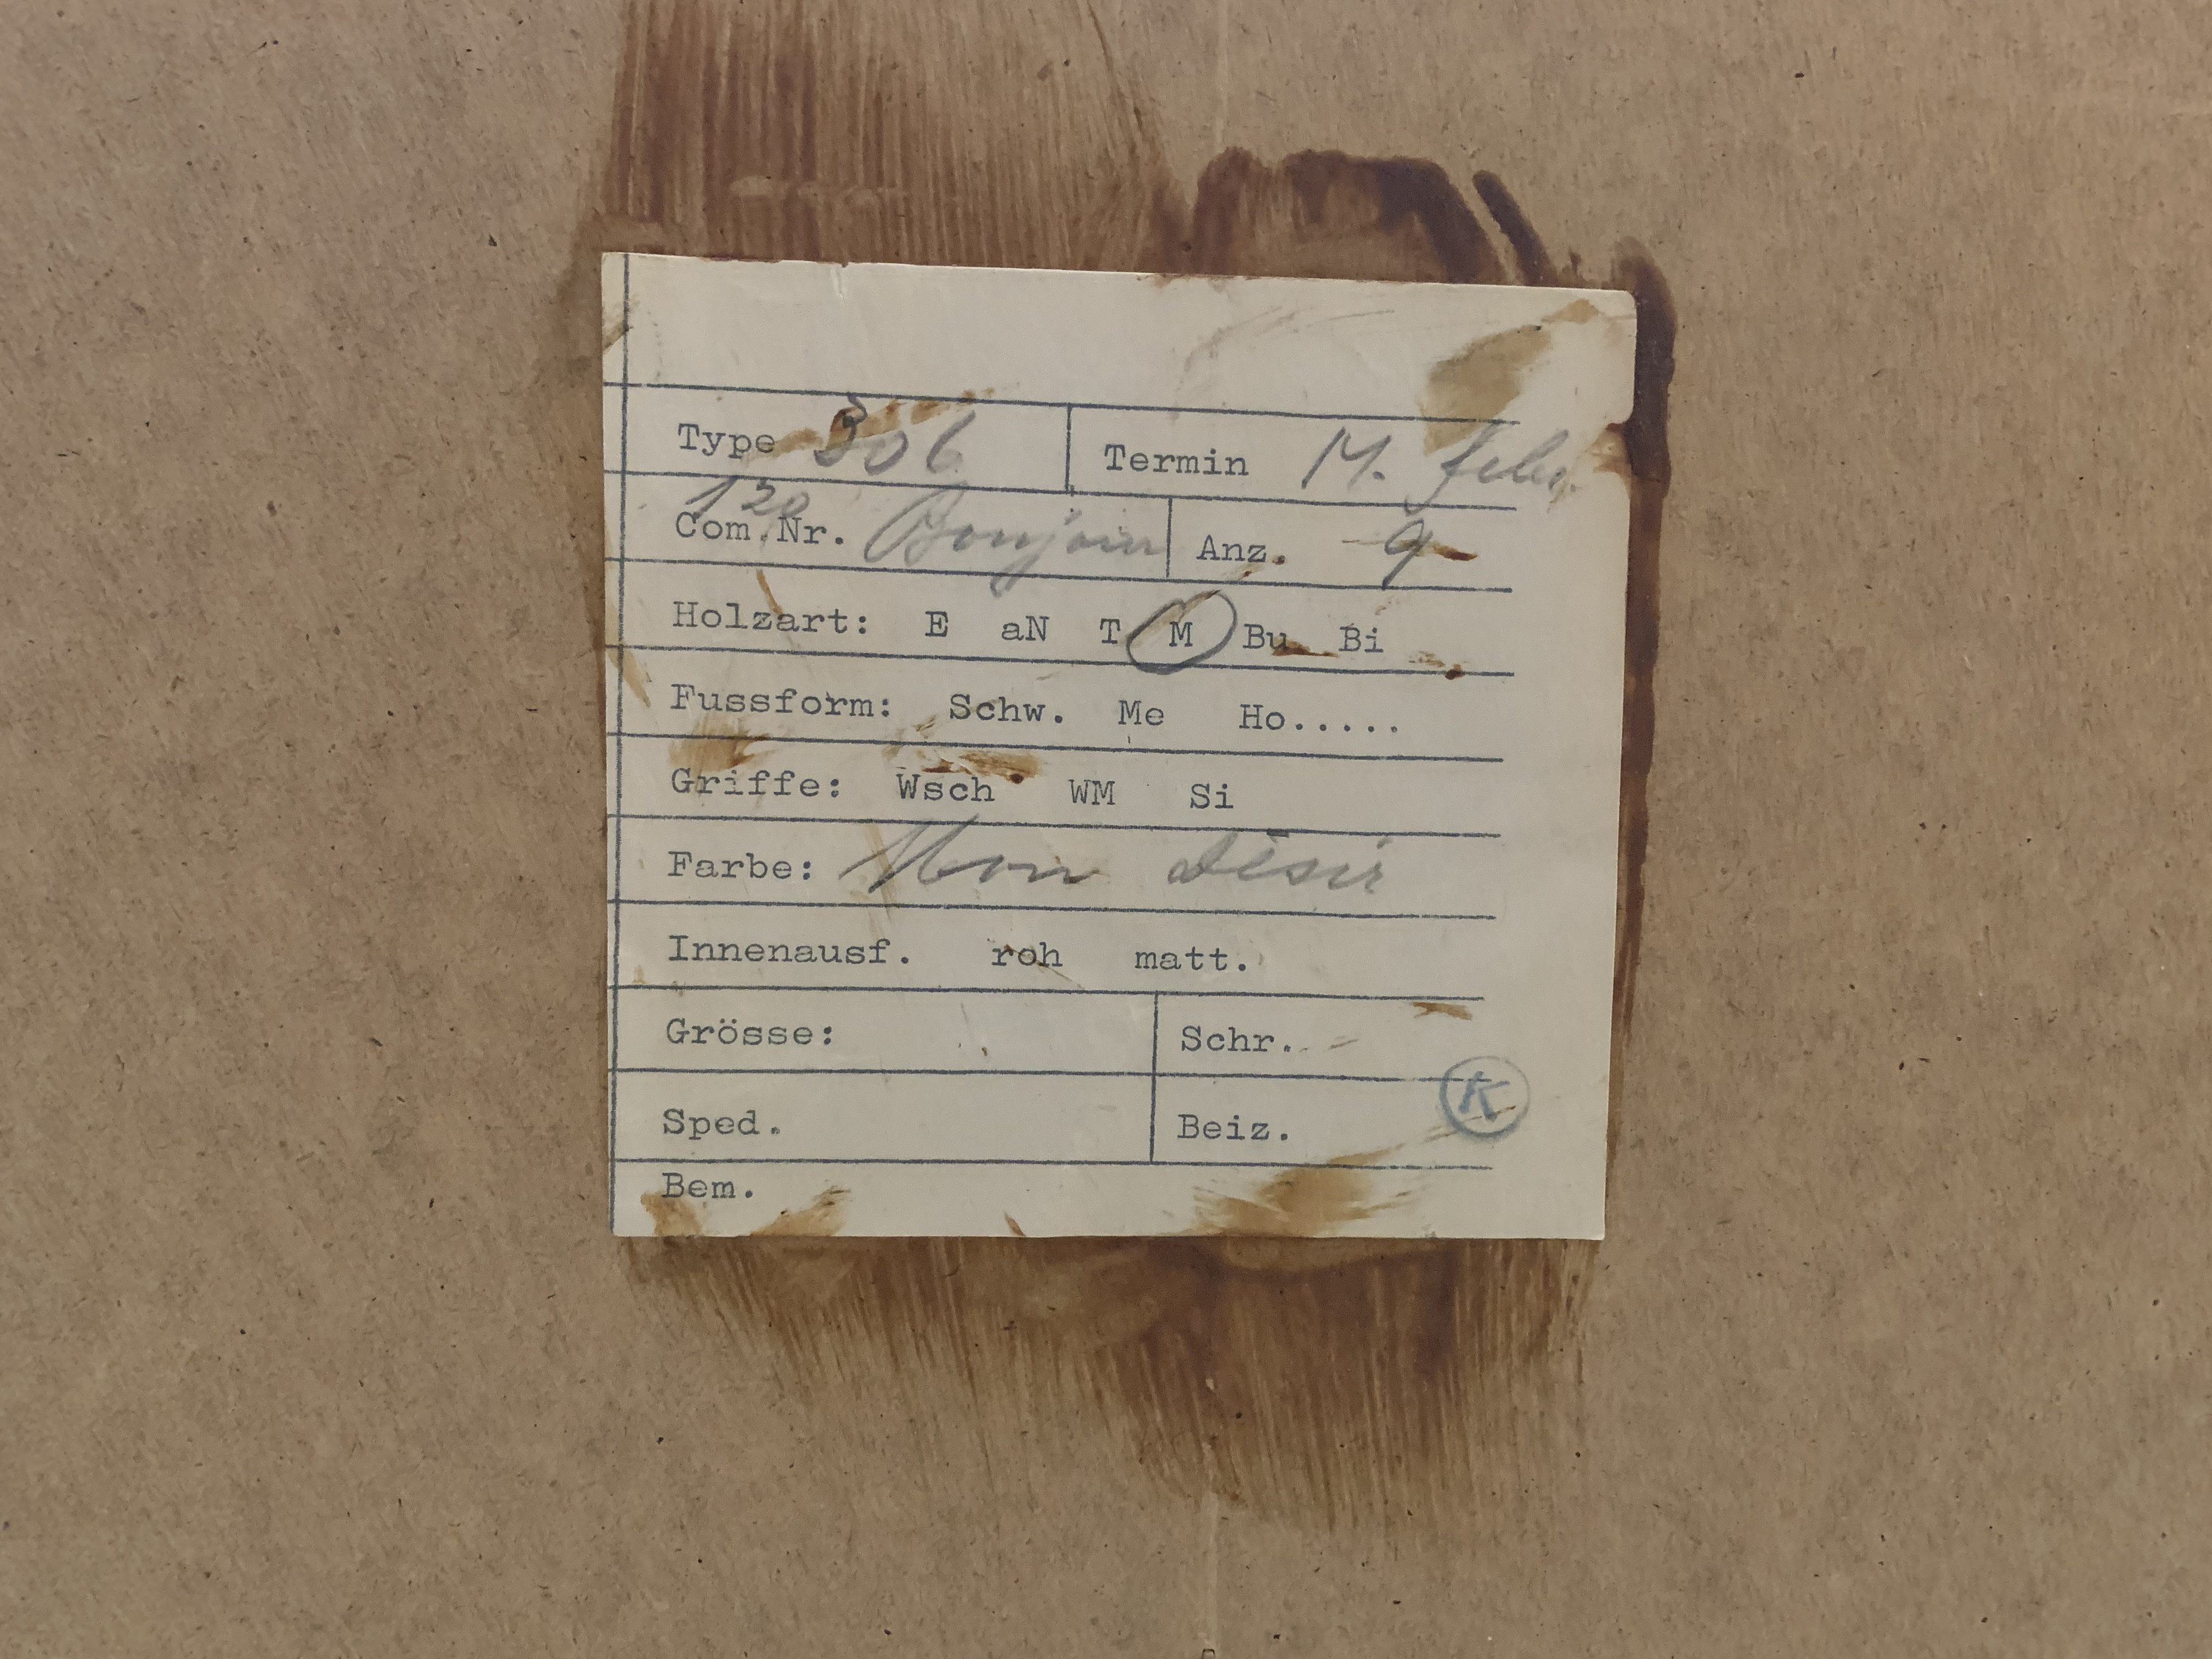 Type 306 Termin 14. Febr.
120
Com.Nr. Bonjour Anz. 9
Holzart: E aN T M Bu Bi
Fussform: Schw. Me Ho.....
Griffe: Wsch WM Si
Farbe: Mon Désir
Innenausf. roh matt.
Grösse: Schr.
K
Sped. Beiz.
Bem.